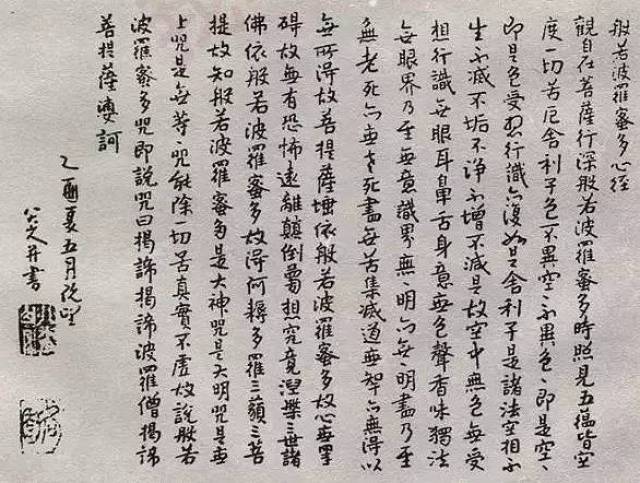 般若波羅蜜多心経
觀自在菩薩行深般若波羅蜜多時照見五蘊皆空
度一切苦厄舍利子色不異空〻不異色〻即是空〻
即是色受想行識亦復如是舍利子是諸法空相不
生不滅不垢不淨不增不減是故空中無色無受
想行識無眼耳鼻舌身意無色聲香味觸法
無眼界乃至無意識界無明亦無明盡乃至
無老死亦無老死盡無苦集滅道無智亦無得以
無所得故菩提薩埵依般若波羅蜜多故心無罣
碍故無有恐怖遠離顛倒夢想究竟涅槃三世諸
佛依般若波羅蜜多故得阿耨多羅三藐三菩
提故知般若波羅蜜多是大神咒是大明咒是無
上咒是無等〻咒能除一切苦真實不虛故說般若
波羅蜜多咒即說咒曰揭諦揭諦波羅僧揭諦
菩提薩婆訶
乙酉夏五月既望
八大山人書